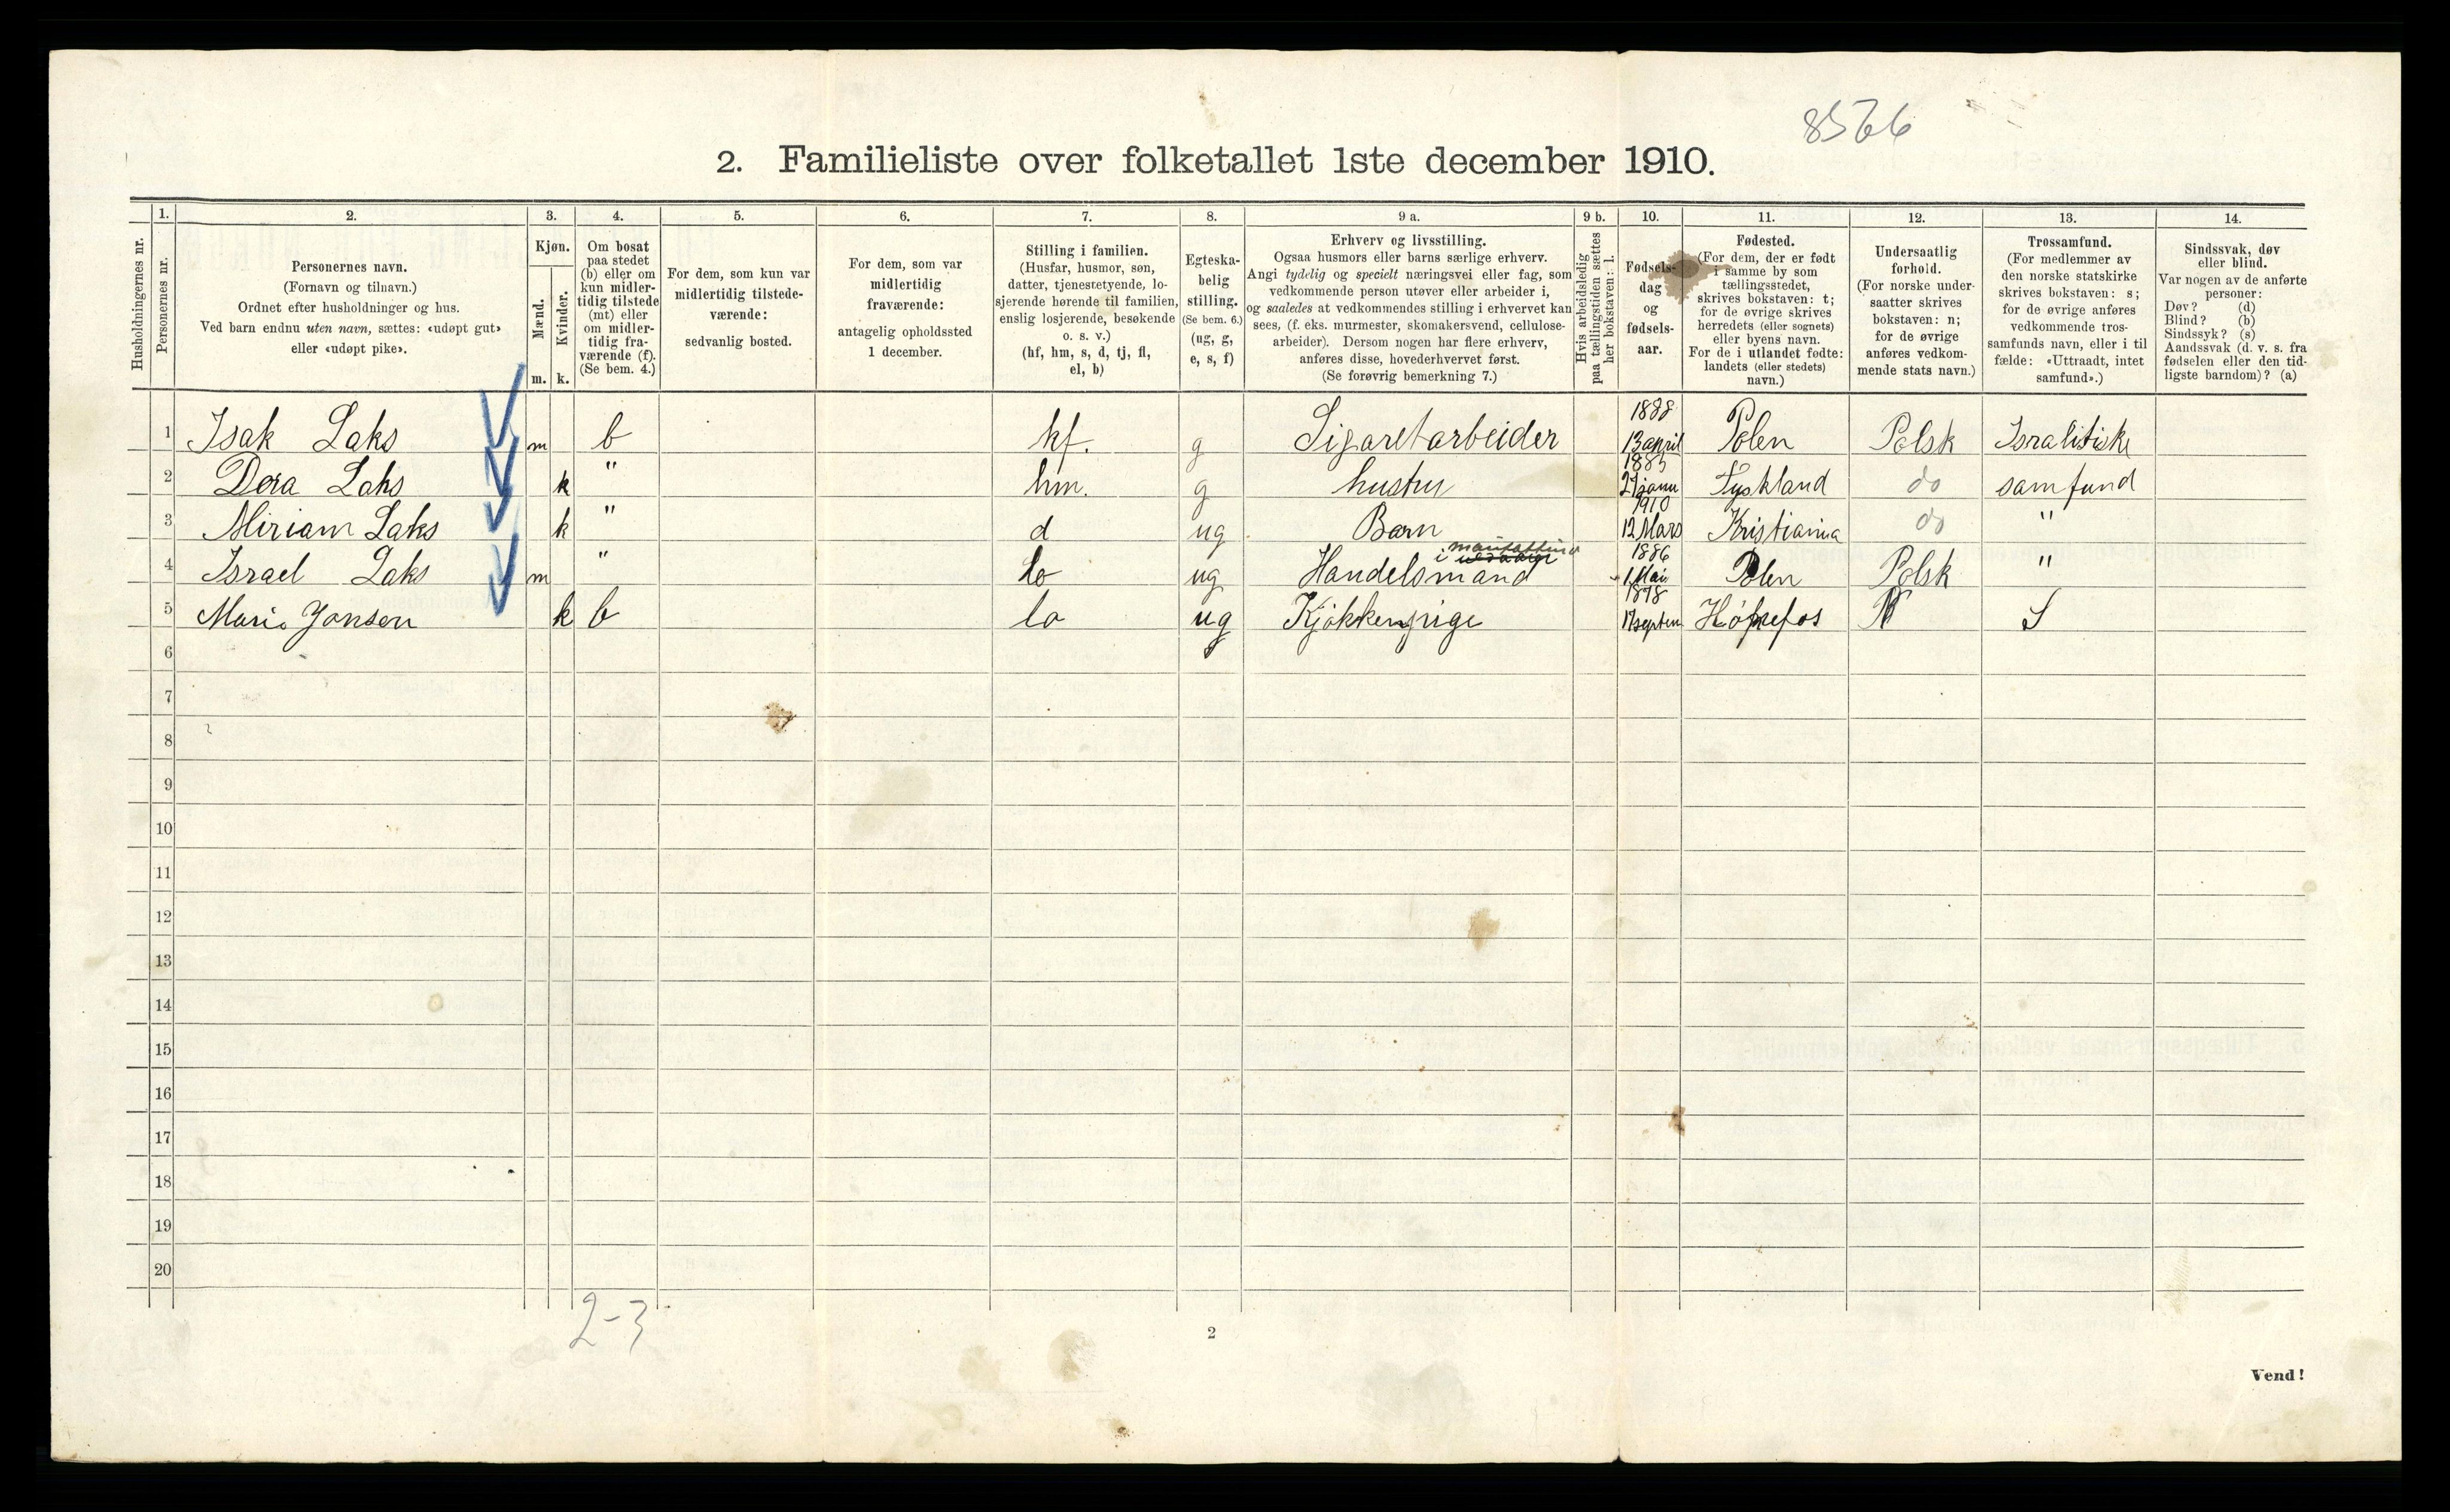 8566
2. Familieliste over folketallet 1ste december 1910.
1. 2. 3. 4. 5. 6. 7. 8. 9 a. 9 b. 10. 11. 12. 13. 14.
Husholdningernes nr.
Personernes nr.
Personernes navn.
(Fornavn og tilnavn.)
Ordnet efter husholdninger og hus.
Ved barn endnu uten navn, sættes: «udøpt gut»
eller «udøpt pike».
Kjøn.
Mænd.
m.
Kvinder.
k.
Om bosat
paa stedet
(b) eller om
kun midler-
tidig tilstede
(mt) eller
om midler-
tidig fra-
værende (f).
(Se bem. 4.)
For dem, som kun var
midlertidig tilstede-
værende:
sedvanlig bosted.
For dem, som var
midlertidig
fraværende:
antagelig opholdssted
1 december.
Stilling i familien.
(Husfar, husmor, søn,
datter, tjenestetyende, lo-
sjerende hørende til familien,
enslig losjerende, besøkende
o. s. v.)
(hf, hm, s, d, tj, fl,
el, b)
Egteska-
belig
stilling.
(Se bem. 6.)
(ug, g,
e, s, f)
Erhverv og livsstilling.
Ogsaa husmors eller barns særlige erhverv.
Angi tydelig og specielt næringsvei eller fag, som
vedkommende person utøver eller arbeider i,
og saaledes at vedkommendes stilling i erhvervet kan
sees, (f. eks. murmester, skomakersvend, cellulose-
arbeider). Dersom nogen har flere erhverv,
anføres disse, hovederhvervet først.
(Se forøvrig bemerkning 7.)
Hvis arbeidsledig
paa tællingstiden sættes
her bokstaven: l.
Fødsels-
dag
og
fødsels-
aar.
Fødested.
(For dem, der er født
i samme by som
tællingsstedet,
skrives bokstaven: t;
for de øvrige skrives
herredets (eller sognets)
eller byens navn.
For de i utlandet fødte:
landets (eller stedets)
navn.)
Undersaatlig
forhold.
(For norske under-
saatter skrives
bokstaven: n;
for de øvrige
anføres vedkom-
mende stats navn.)
Trossamfund.
(For medlemmer av
den norske statskirke
skrives bokstaven: s;
for de øvrige anføres
vedkommende tros-
samfunds navn, eller i til
fælde: «Uttraadt, intet
samfund».)
Sindssvak, døv
eller blind.
Var nogen av de anførte
personer:
Døv? (d)
Blind? (b)
Sindssyk? (s)
Aandssvak (d. v. s. fra
fødselen eller den tid-
ligste barndom)? (a)
1 Isak Laks m b hf. g Sigaretarbeider 1888 13 april Polen Polsk Isralitiske
2 Dora Laks k " hm. g hustru 1885 janu Tyskland do samfund
3 Miriam Laks k " d ug Barn 1910 12 Mars Kristiania do "
4 Israel Laks m " lo ug Handelsmand i 1886 1 Mai Polen Polsk "
5 Marie Jonsen k b lo ug Kjøkkenpige 1878 17 septem Hónefos N S
6
7
8
9
10
11
12
13
14
15
16
17
18
19
20
2-3
2
Vend!